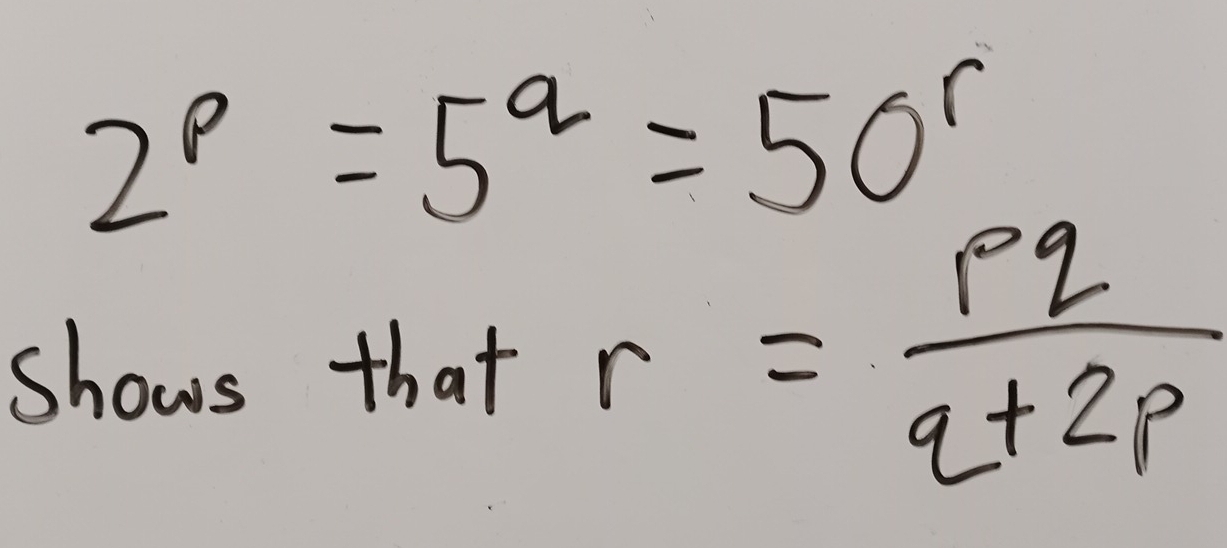 2^p = 5^q = 50^r
shows that r = pq/(q+2p)